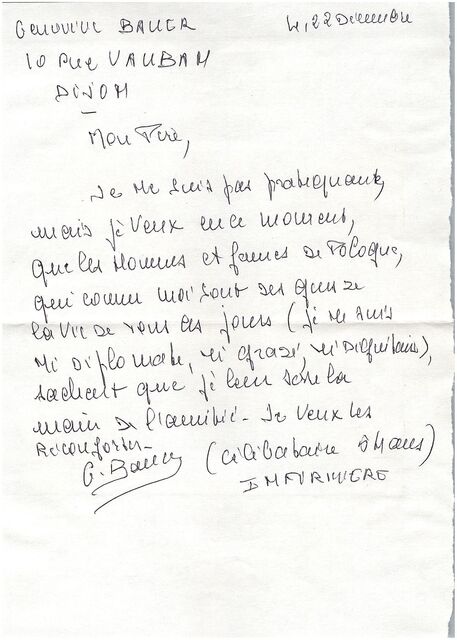 Geneviève BAUER
le, 22 Décembre
10 Rue VAUBAN
DIJON
Mon Père,
Je ne suis pas pratiquante,
mais je veux en ce moment,
que les Hommes et femmes de Pologne,
qui comme moi sont des gens de
la vie de tous les jours (je ne suis
ni diplomate, ni , ni Dignitaire),
sachent que je leur serre la
main de l'amitié - Je veux les
Réconforter -
G. Bauer (célibataire ans)
INFIRMIERE